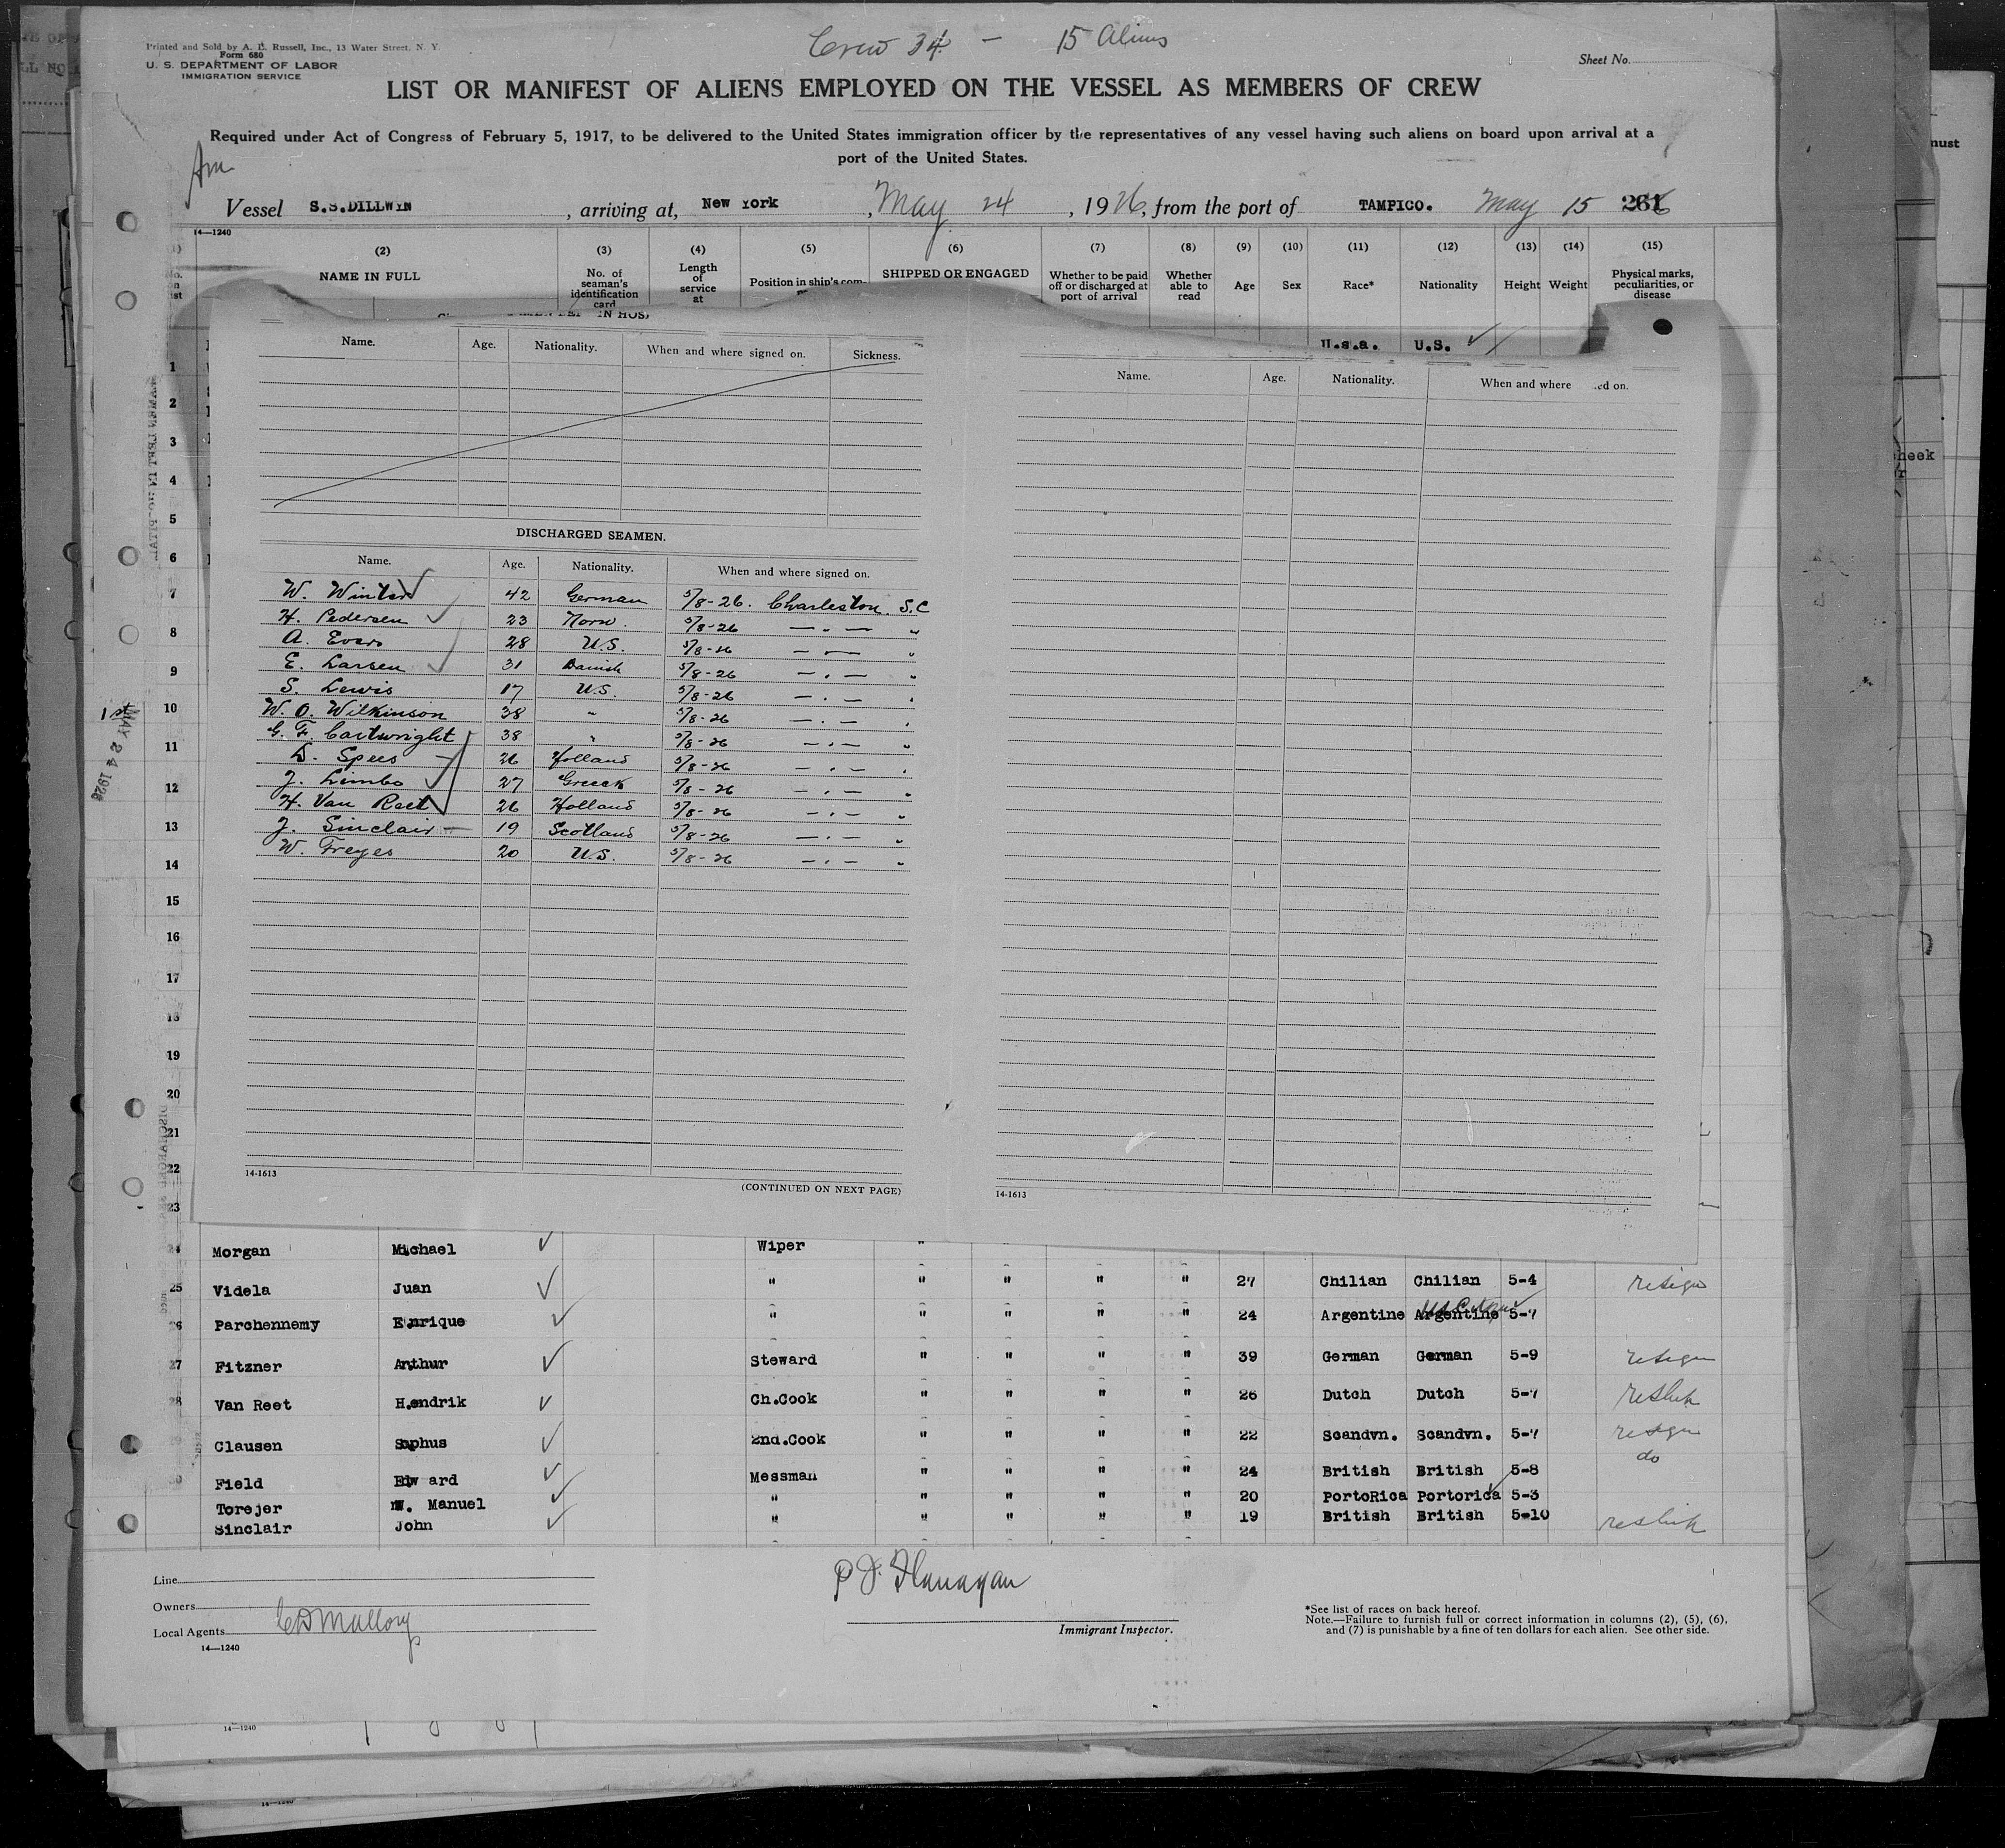 Crew 34 — 15 Aliens
Printed and Sold by A. E. Russell, Inc., 13 Water Street, N. Y.
Form 680
U. S. DEPARTMENT OF LABOR
IMMIGRATION SERVICE
Sheet No.
LIST OR MANIFEST OF ALIENS EMPLOYED ON THE VESSEL AS MEMBERS OF CREW
Required under Act of Congress of February 5, 1917, to be delivered to the United States immigration officer by the representatives of any vessel having such aliens on board upon arrival at a
port of the United States.
Am
Vessel S.S.DILLWYN , arriving at, New York , May 24 , 1926, from the port of TAMPICO. May 15
14—1240
(2) (3) (4) (5) (6) (7) (8) (9) (10) (11) (12) (13) (14) (15)
NAME IN FULL
No. of seaman's identification card
Length of service at
Position in ship's com-
SHIPPED OR ENGAGED
Whether to be paid off or discharged at port of arrival
Whether able to read
Age Sex Race* Nationality Height Weight
Physical marks, peculiarities, or disease
U.s.a. U.S.
Name. Age. Nationality. When and where signed on. Sickness.
Name. Age. Nationality. When and where ed on.
DISCHARGED SEAMEN.
Name. Age. Nationality. When and where signed on.
W. Winter 42 German 5/8-26. Charleston. S.C
H. Pedersen 23 Norw. 5/8-26 — . — "
A. Evers 28 U.S. 5/8-26 — . — "
E. Larsen 31 Danish 5/8-26 — . — "
S. Lewis 17 U.S. 5/8-26 — . — "
W. O. Wilkinson 38 " 5/8-26 — . — "
G. F. Cartwright 38 " 5/8-26 — . — "
D. Spees 26 Holland 5/8-26 — . — "
J. Limbo 27 Greeck 5/8-26 — . — "
H. Van Reet 26 Holland 5/8-26 — . — "
J. Sinclair 19 Scotland 5/8-26 — . — "
W. Freyes 20 U.S. 5/8-26 — . — "
1
2
3
4
5
6
7
8
9
10
11
12
13
14
15
16
17
18
19
20
21
22
23
1st
MAY 24 1926
14-1613
(CONTINUED ON NEXT PAGE)
14-1613
24 Morgan Michael Wiper "
25 Videla Juan " " " " " 27 Chilian Chilian 5-4 resign
26 Parchennemy Enrique " " " " " 24 Argentine Argentine 5-7
27 Fitzner Arthur Steward " " " " 39 German German 5-9 resign
28 Van Reet Hendrik Ch.Cook " " " " 26 Dutch Dutch 5-7 reship
29 Clausen Sophus 2nd.Cook " " " " 22 Scandvn. Scandvn. 5-7 resign
30 Field Edward Messman " " " " 24 British British 5-8 do
Torejer W. Manuel " " " " " 20 PortoRica Portorica 5-3
Sinclair John " " " " " 19 British British 5-10 reship
Line
Owners
Local Agents CD Mallory
14—1240
P J. Flanagan
Immigrant Inspector.
*See list of races on back hereof.
Note.—Failure to furnish full or correct information in columns (2), (5), (6),
and (7) is punishable by a fine of ten dollars for each alien. See other side.
14—1240